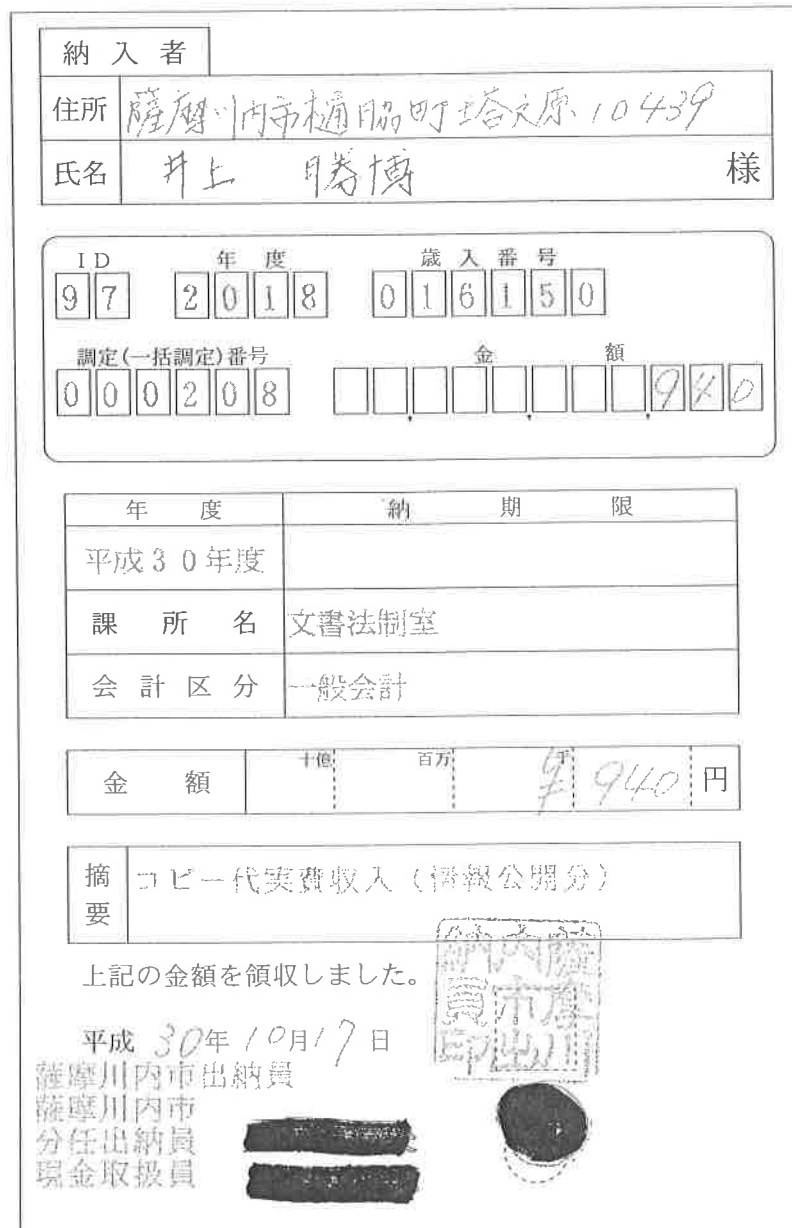 納入者
住所 薩摩川内市樋脇町塔之原10439
氏名 井上 勝博 様
ID 年度 歳入番号
97 2018 016150
調定(一括調定)番号 金額
000208 940
年度 納期限
平成30年度
課所名 文書法制室
会計区分 一般会計
金額 十億 百万 千 ¥940円
摘要 コピー代実費収入(情報公開分)
上記の金額を領収しました。
薩摩川内市出納員印
平成30年10月17日
薩摩川内市出納員
薩摩川内市
分任出納員
現金取扱員